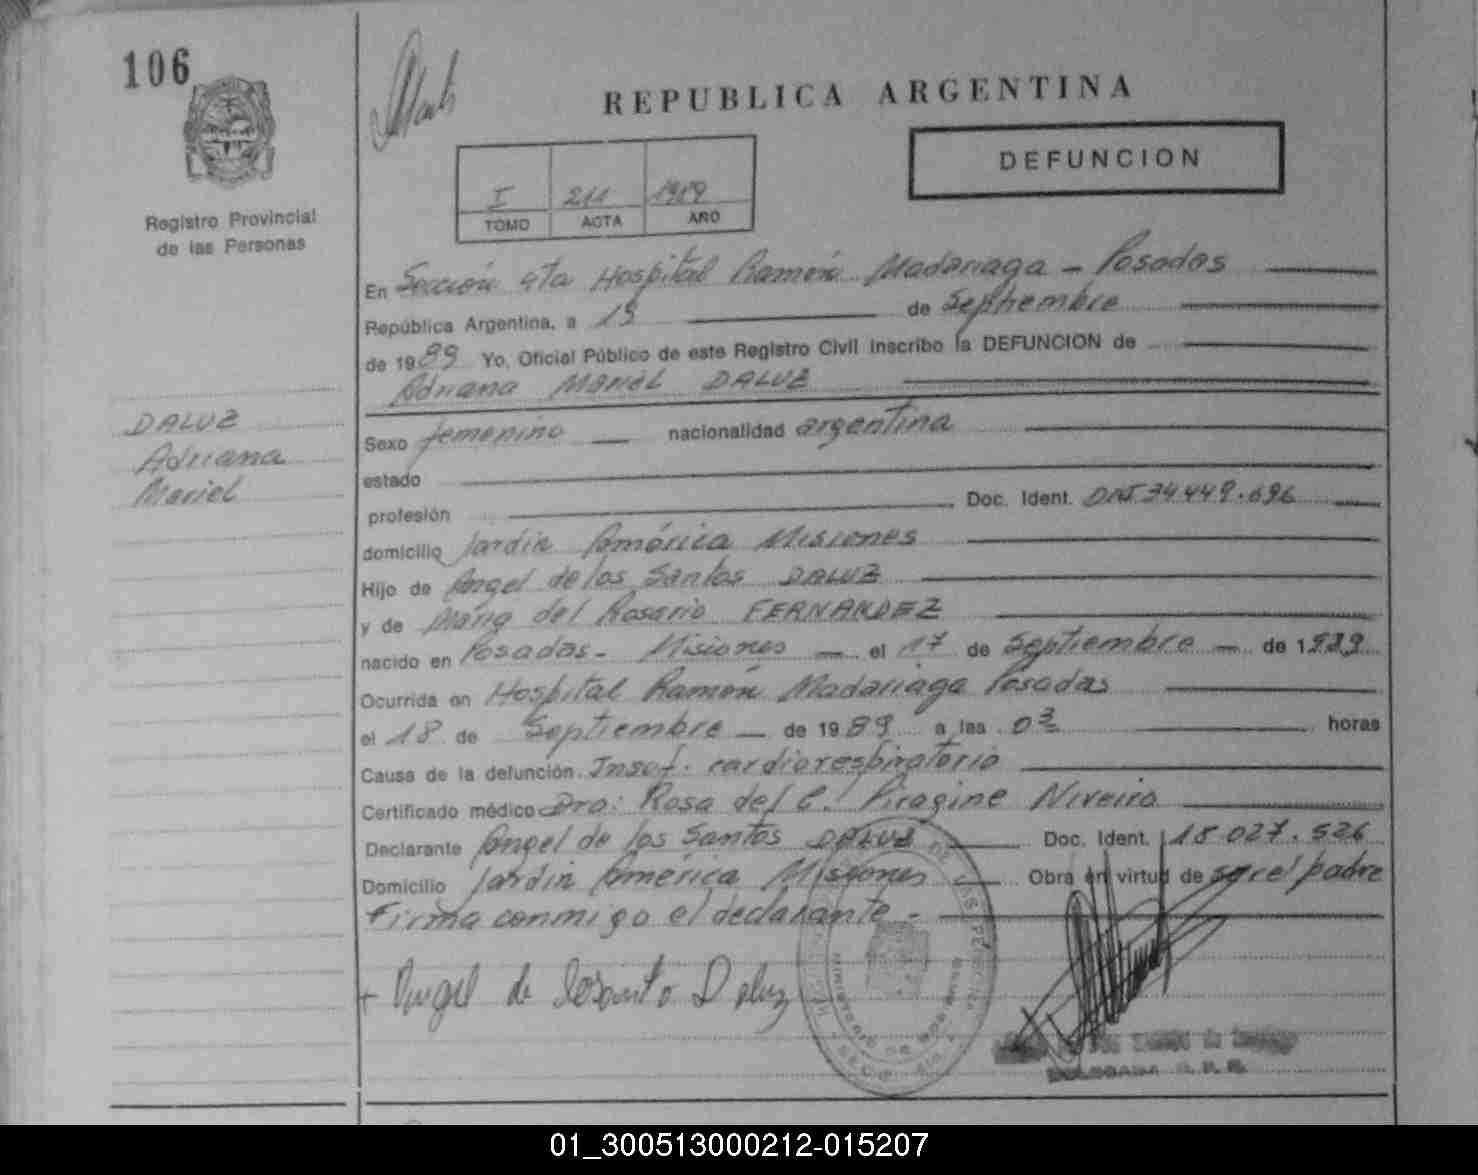 106
REPUBLICA ARGENTINA
DEFUNCION
I 211 1989
TOMO ACTA AÑO
Registro Provincial
de las Personas
En Sección 4ta Hospital Ramón Madariaga - Posadas
República Argentina, a 19 de Septiembre
de 1989 Yo, Oficial Público de este Registro Civil inscribo la DEFUNCION de
Adriana Mariel DALUZ
DALUZ
Adriana
Mariel
Sexo femenino nacionalidad argentina
estado
profesión Doc. Ident. DNI. 34.449.696
domicilio Jardín América Misiones
Hijo de Angel de los Santos DALUZ
y de María del Rosario FERNANDEZ
nacido en Posadas - Misiones el 17 de Septiembre de 1989
Ocurrida en Hospital Ramón Madariaga Posadas
el 18 de Septiembre de 1989 a las 03 horas
Causa de la defunción Insuf. cardiorespiratorio
Certificado médico Dra: Rosa del C. Piragine Niveiro
Declarante Angel de los Santos DALUZ Doc. Ident. 18.027.526
Domicilio Jardín América Misiones Obra en virtud de ser el padre
Firma conmigo el declarante -
+ Angel de losanto Daluz
01_300513000212-015207